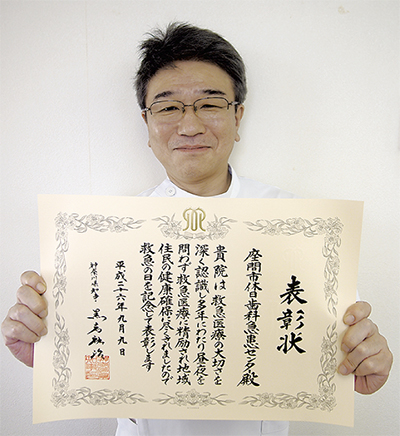 表彰状
座間市休日歯科急患センター殿
貴院は救急医療の大切さを
深く認識し多年にわたり昼夜を
問わず救急医療に精励され地域
住民の健康確保に尽くされましたので
救急の日を記念して表彰します
平成二十六年九月九日
神奈川県知事 黒岩祐治